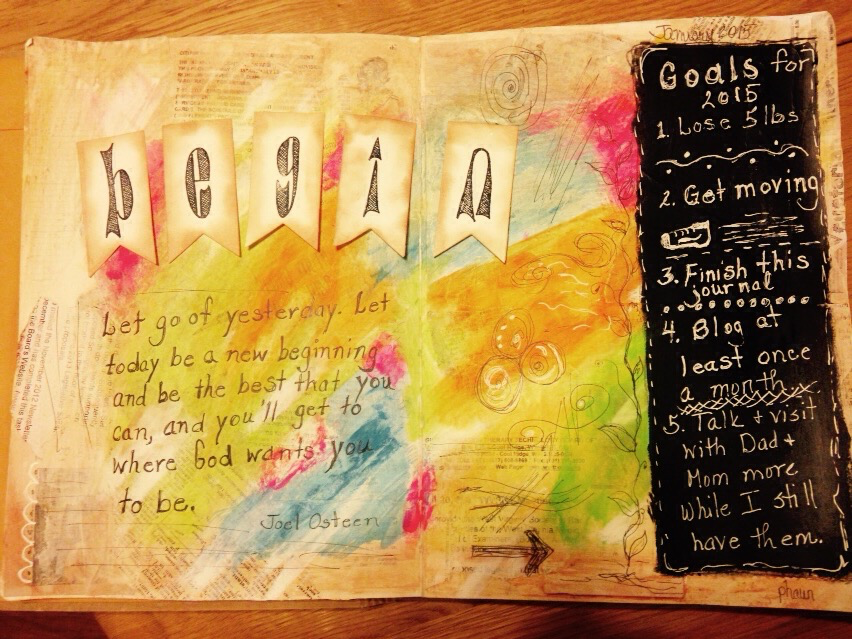 begin
Let go of yesterday. Let
today be a new beginning
and be the best that you
can, and you'll get to
where God wants you
to be.
Joel Osteen
January 2015
Goals for
2015
1. Lose 5 lbs
2. Get moving
3. Finish this
journal
4. Blog at
least once
a month.
5. Talk + visit
with Dad +
Mom more
while I still
have them.